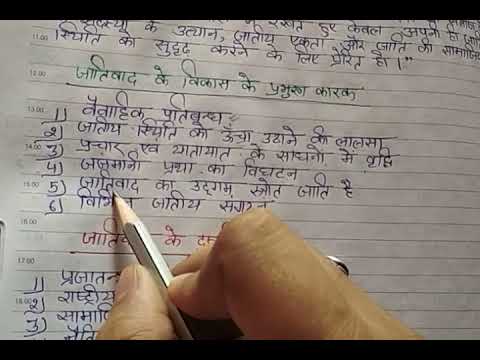 सदस्यों के उत्थान, जातीय एकता और जाति की सामाजिक
स्थिति को सुदृढ़ करने के लिए प्रेरित हो।"
11.00
12.00
जातिवाद के विकास के प्रमुख कारक
13.00
1) वैवाहिक प्रतिबन्ध
2) जातीय स्थिति को ऊँचा उठाने की लालसा
3) प्रचार एवं यातायात के साधनों में वृद्धि
4) जजमानी प्रथा का विघटन
15.00
5) जातिवाद का उद्गम स्रोत जाति है
6) जातीय संगठन
16.00
के
17.00
1)
2) राष्ट्रीय
18.00
3)